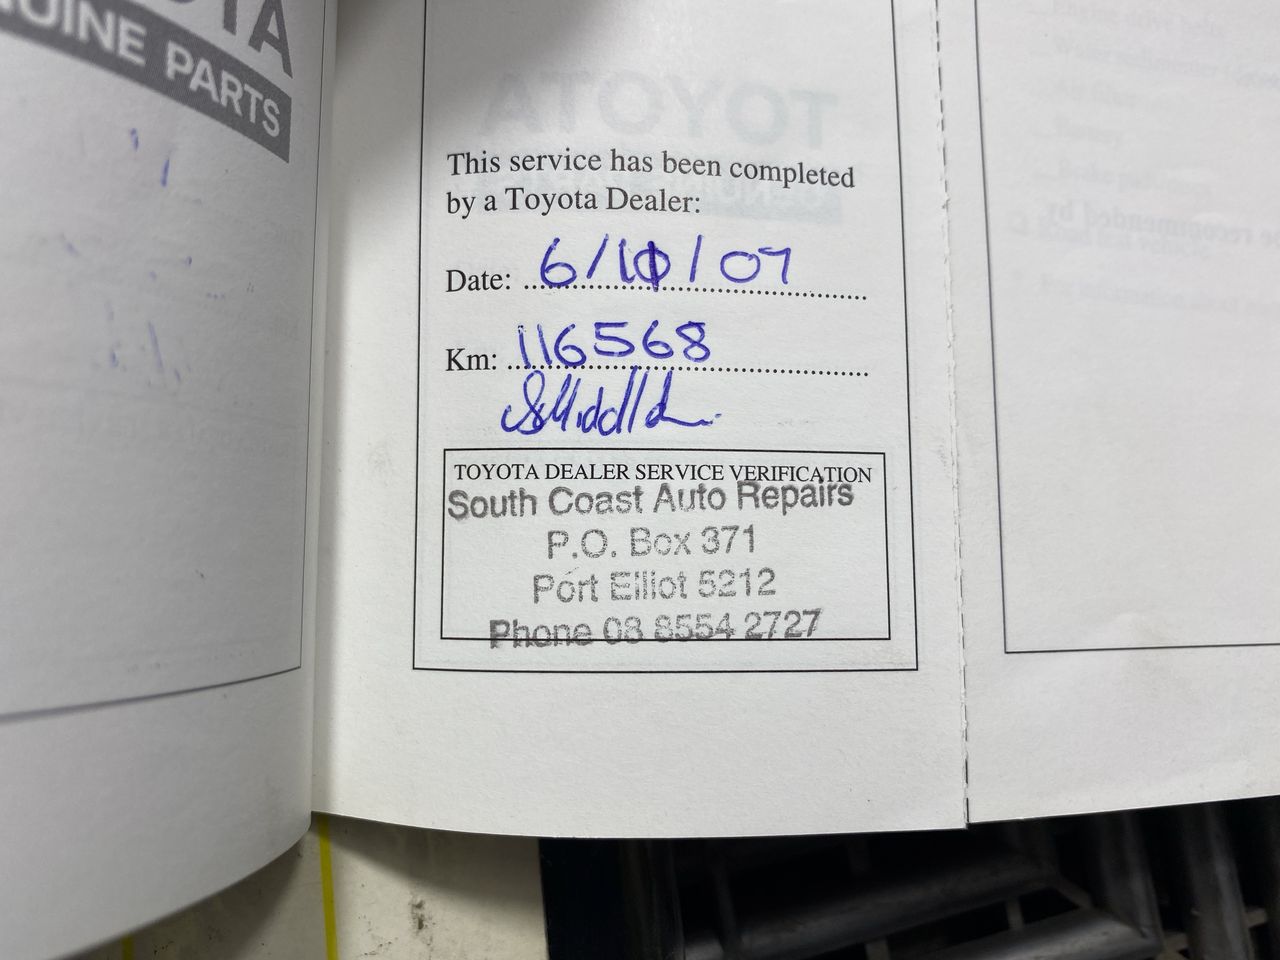 TOYOTA
GENUINE PARTS
This service has been completed
by a Toyota Dealer:
Date: 6/10/07
Km: 116568
TOYOTA DEALER SERVICE VERIFICATION
South Coast Auto Repairs
P.O. Box 371
Port Elliot 5212
Phone 08 8554 2727